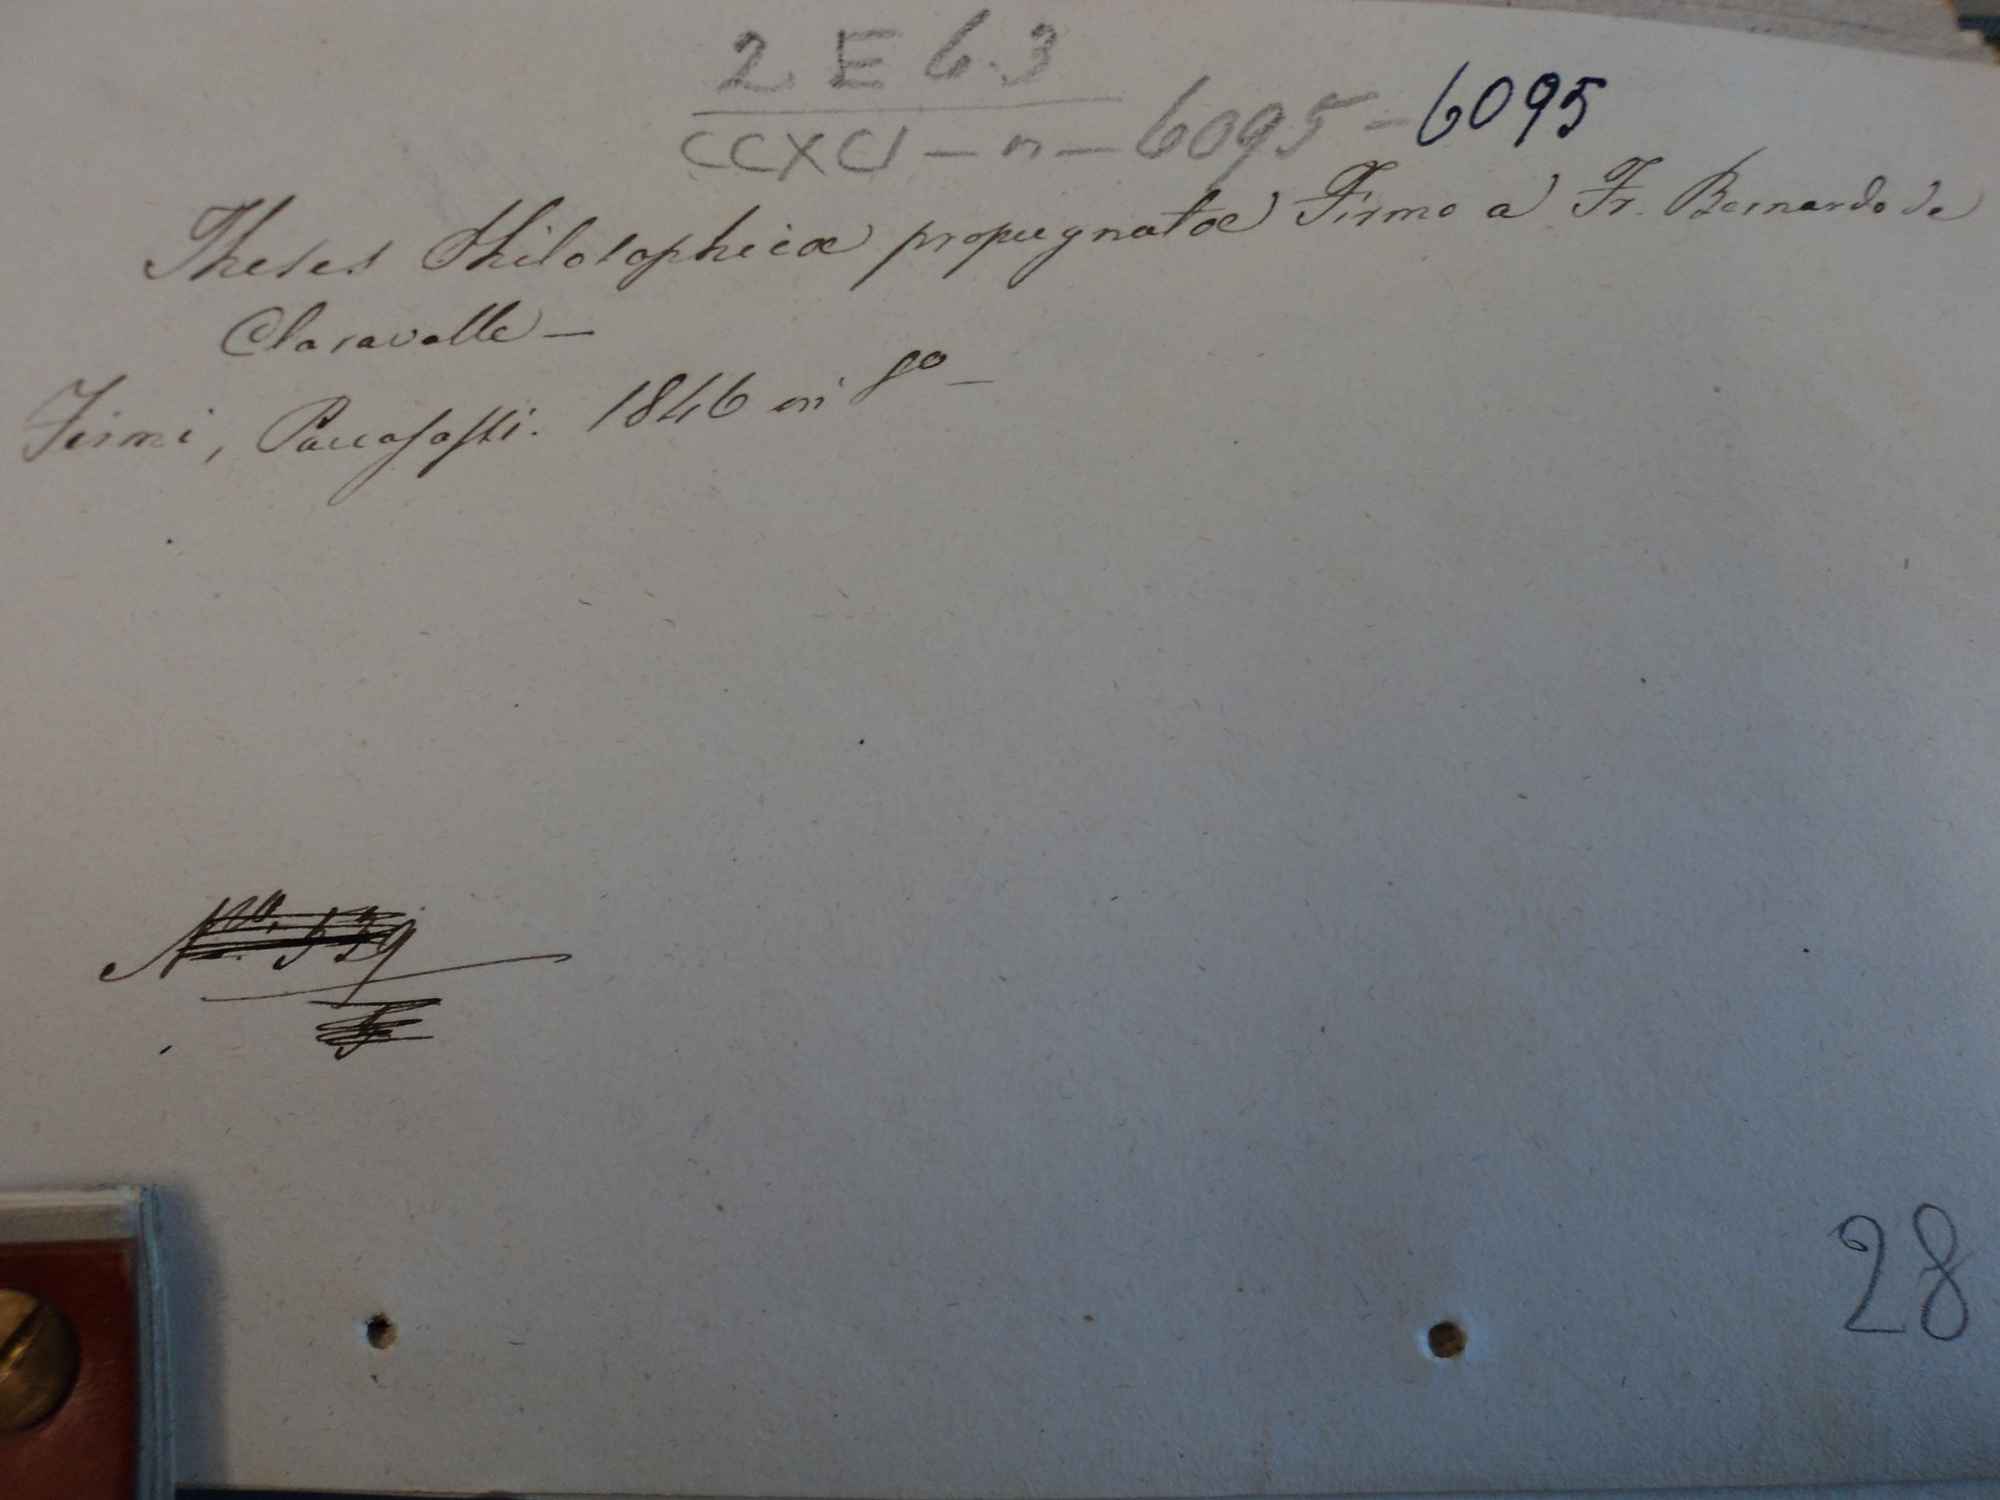 2 E 6.3
CCXCI - n - 6095 - 6095
Theses Philosophicæ propugnatæ Firmo a Fr. Bernardo de
Claravalle -
Firmi, Paccasassi. 1846 in 8º -
Nº. 539
28